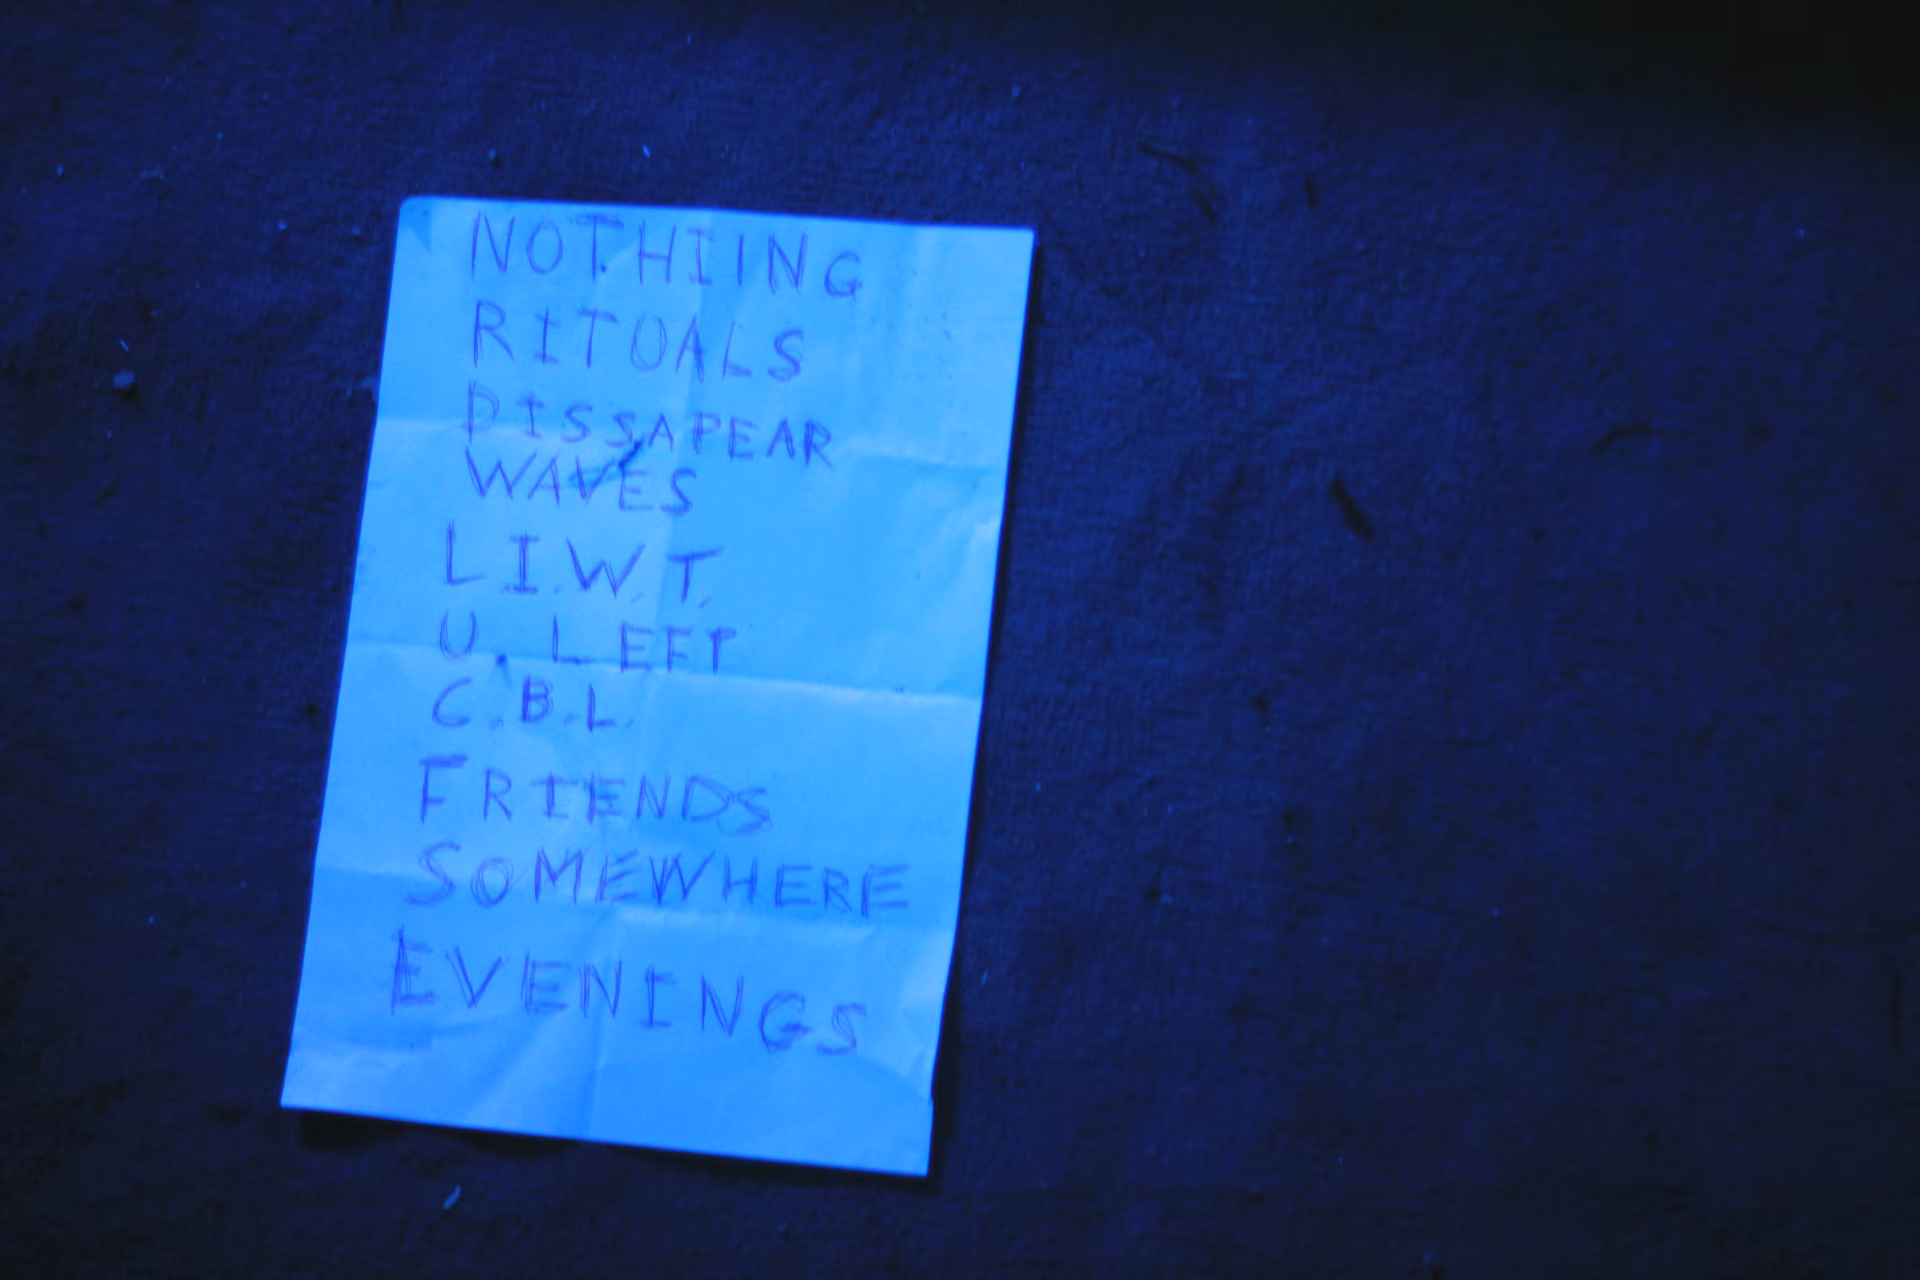 NOTHIING
RITUALS
DISSAPEAR
WAVES
L I.W.T.
U. LEFT
C.B.L.
FRIENDS
SOMEWHERE
EVENINGS